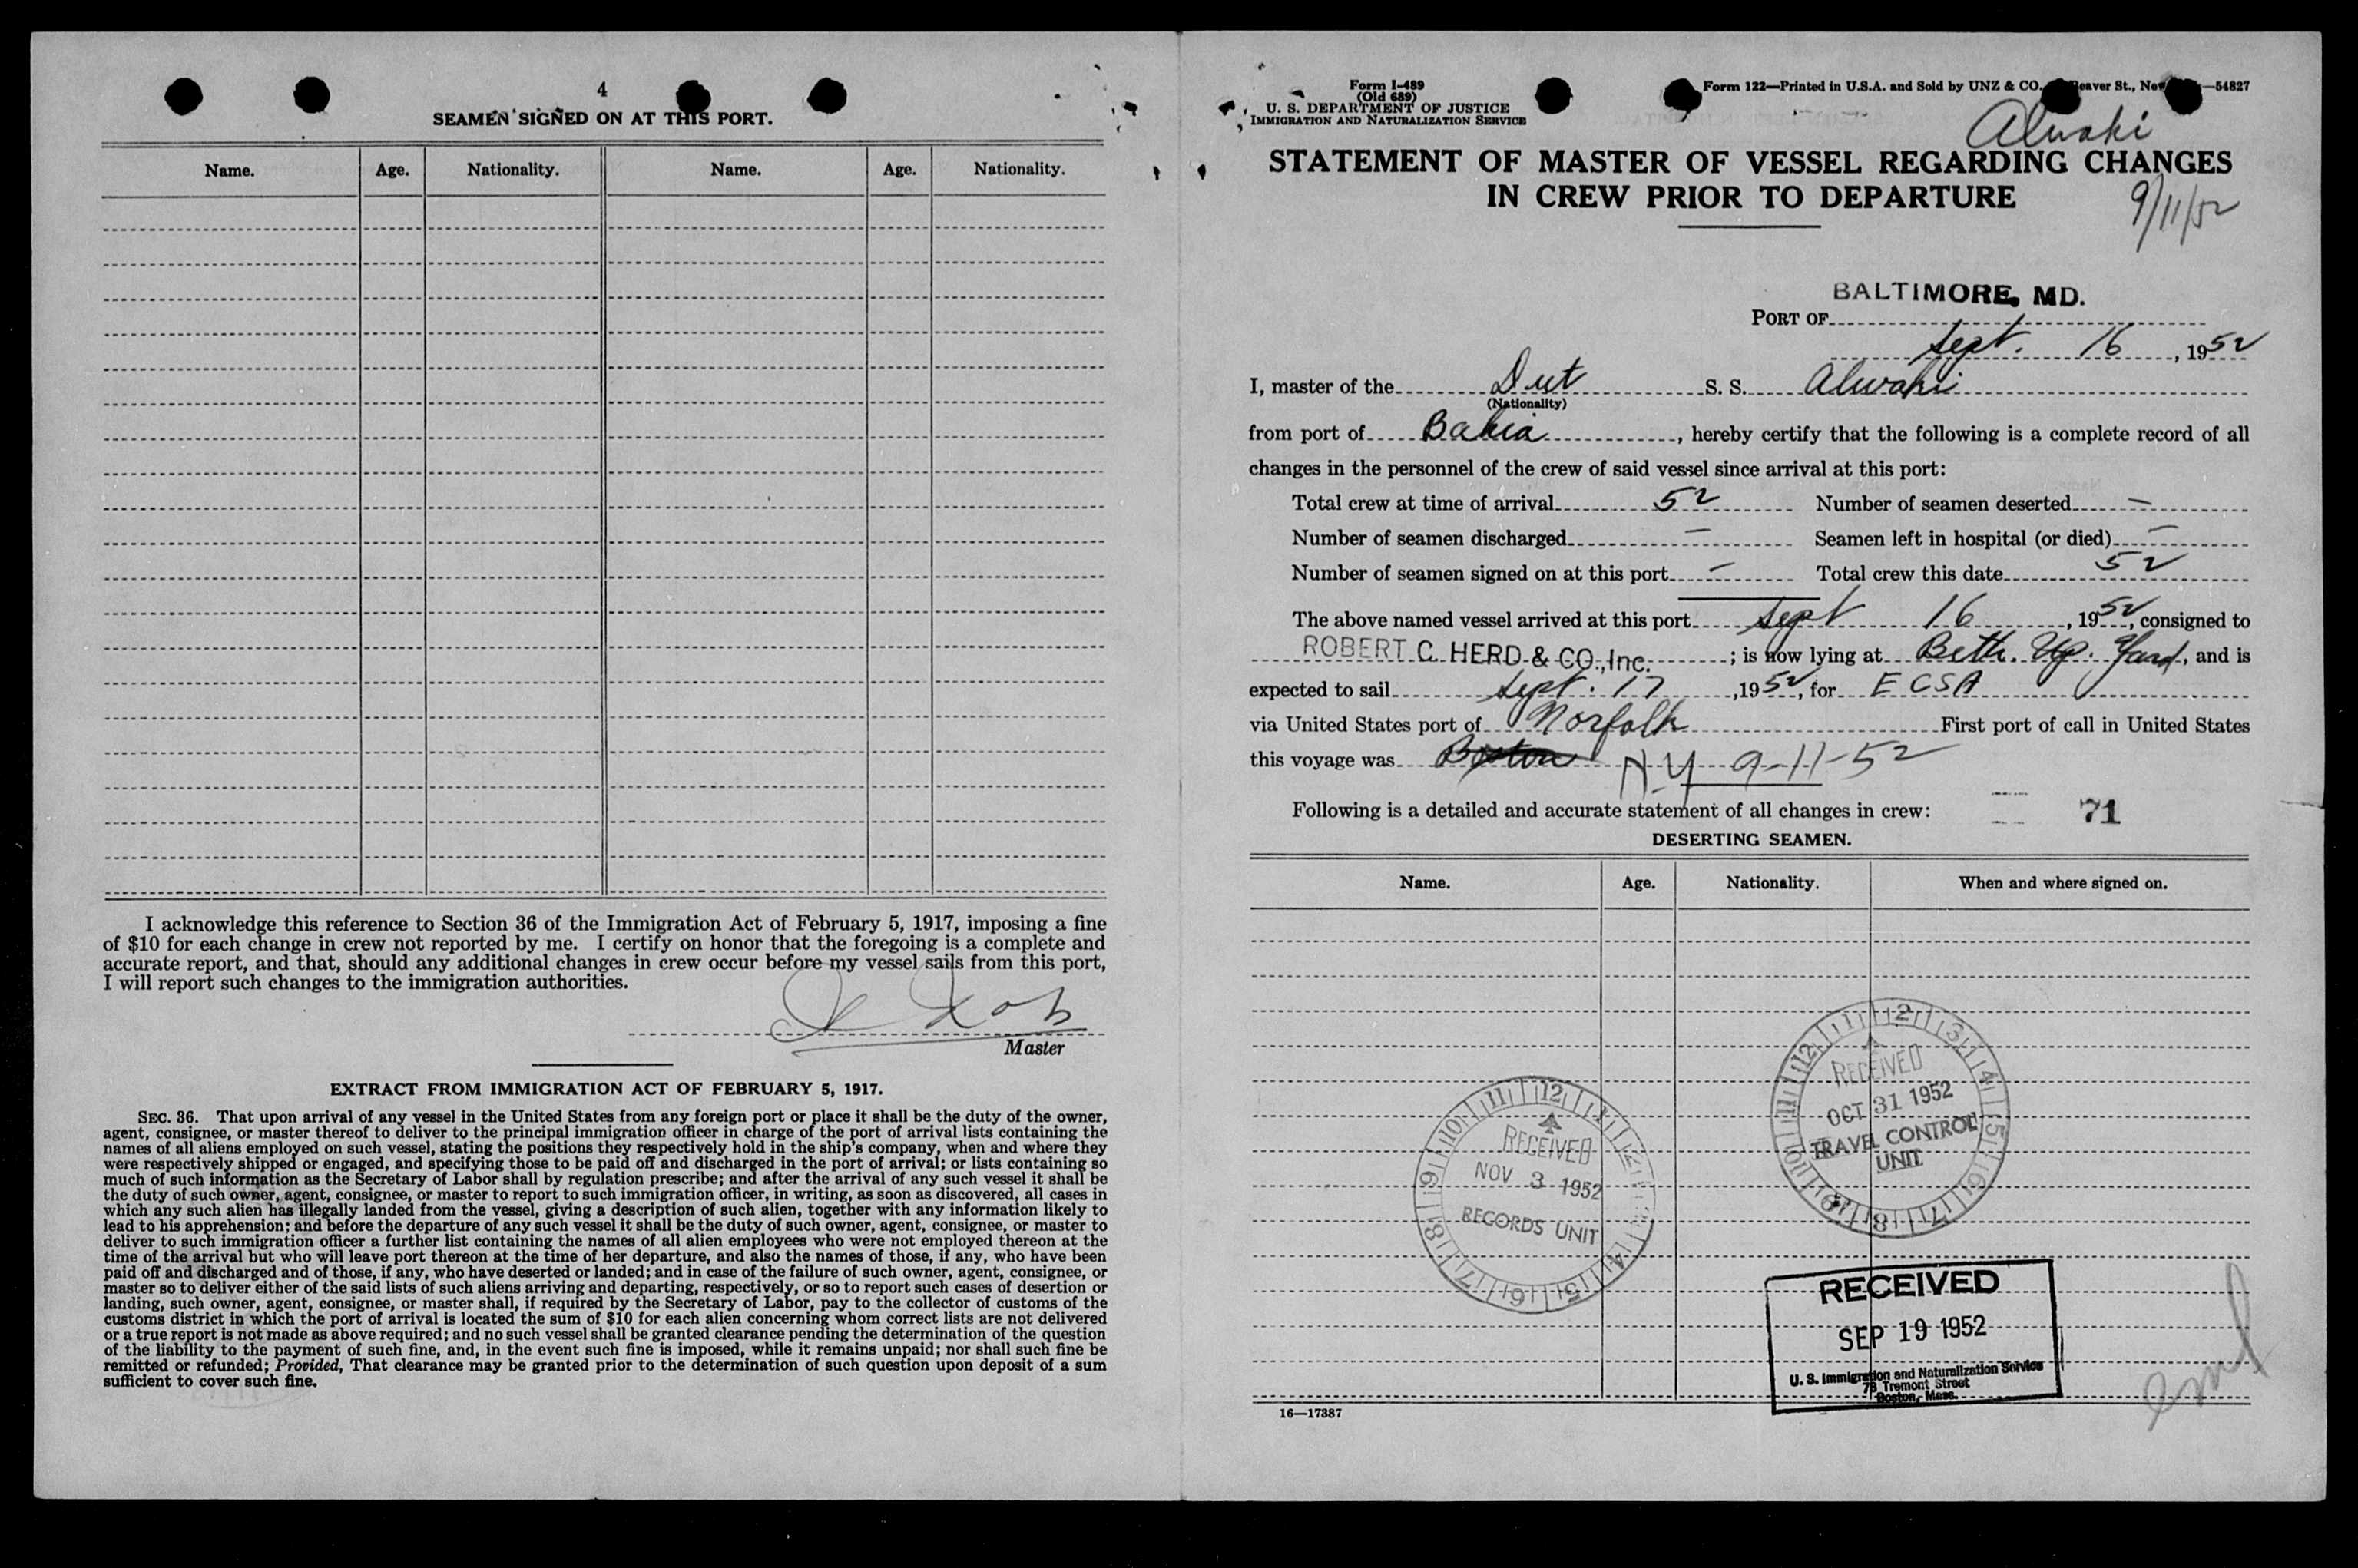 4
SEAMEN SIGNED ON AT THIS PORT.
Name. Age. Nationality. Name. Age. Nationality.
I acknowledge this reference to Section 36 of the Immigration Act of February 5, 1917, imposing a fine
of $10 for each change in crew not reported by me. I certify on honor that the foregoing is a complete and
accurate report, and that, should any additional changes in crew occur before my vessel sails from this port,
I will report such changes to the immigration authorities.
Master
EXTRACT FROM IMMIGRATION ACT OF FEBRUARY 5, 1917.
SEC. 36. That upon arrival of any vessel in the United States from any foreign port or place it shall be the duty of the owner,
agent, consignee, or master thereof to deliver to the principal immigration officer in charge of the port of arrival lists containing the
names of all aliens employed on such vessel, stating the positions they respectively hold in the ship's company, when and where they
were respectively shipped or engaged, and specifying those to be paid off and discharged in the port of arrival; or lists containing so
much of such information as the Secretary of Labor shall by regulation prescribe; and after the arrival of any such vessel it shall be
the duty of such owner, agent, consignee, or master to report to such immigration officer, in writing, as soon as discovered, all cases in
which any such alien has illegally landed from the vessel, giving a description of such alien, together with any information likely to
lead to his apprehension; and before the departure of any such vessel it shall be the duty of such owner, agent, consignee, or master to
deliver to such immigration officer a further list containing the names of all alien employees who were not employed thereon at the
time of the arrival but who will leave port thereon at the time of her departure, and also the names of those, if any, who have been
paid off and discharged and of those, if any, who have deserted or landed; and in case of the failure of such owner, agent, consignee, or
master so to deliver either of the said lists of such aliens arriving and departing, respectively, or so to report such cases of desertion or
landing, such owner, agent, consignee, or master shall, if required by the Secretary of Labor, pay to the collector of customs of the
customs district in which the port of arrival is located the sum of $10 for each alien concerning whom correct lists are not delivered
or a true report is not made as above required; and no such vessel shall be granted clearance pending the determination of the question
of the liability to the payment of such fine, and, in the event such fine is imposed, while it remains unpaid; nor shall such fine be
remitted or refunded; Provided, That clearance may be granted prior to the determination of such question upon deposit of a sum
sufficient to cover such fine.
Form I-489
(Old 689)
U. S. DEPARTMENT OF JUSTICE
IMMIGRATION AND NATURALIZATION SERVICE
Form 122—Printed in U.S.A. and Sold by UNZ & CO. Beaver St., New —54827
Alwaki
STATEMENT OF MASTER OF VESSEL REGARDING CHANGES
IN CREW PRIOR TO DEPARTURE
9/11/52
BALTIMORE, MD.
PORT OF
Sept. 16, 1952
I, master of the Dut S. S. Alwaki
(Nationality)
from port of Bahia, hereby certify that the following is a complete record of all
changes in the personnel of the crew of said vessel since arrival at this port:
Total crew at time of arrival 52 Number of seamen deserted —
Number of seamen discharged — Seamen left in hospital (or died) —
Number of seamen signed on at this port — Total crew this date 52
The above named vessel arrived at this port Sept 16, 1952, consigned to
ROBERT C. HERD & CO., Inc.; is now lying at Beth. Up. Yard, and is
expected to sail Sept. 17, 1952, for ECSA
via United States port of Norfolk First port of call in United States
this voyage was Boston N.Y 9-11-52
Following is a detailed and accurate statement of all changes in crew: 71
DESERTING SEAMEN.
Name. Age. Nationality. When and where signed on.
12 1 2 3 4 5 6 7 8 9 10 11
RECEIVED
OCT 31 1952
TRAVEL CONTROL
UNIT
11 12 1 2 3 4 5 6 7 8 9 10
RECEIVED
NOV 3 1952
RECORDS UNIT
RECEIVED
SEP 19 1952
U. S. Immigration and Naturalization Service
73 Tremont Street
Boston, Mass.
16—17387